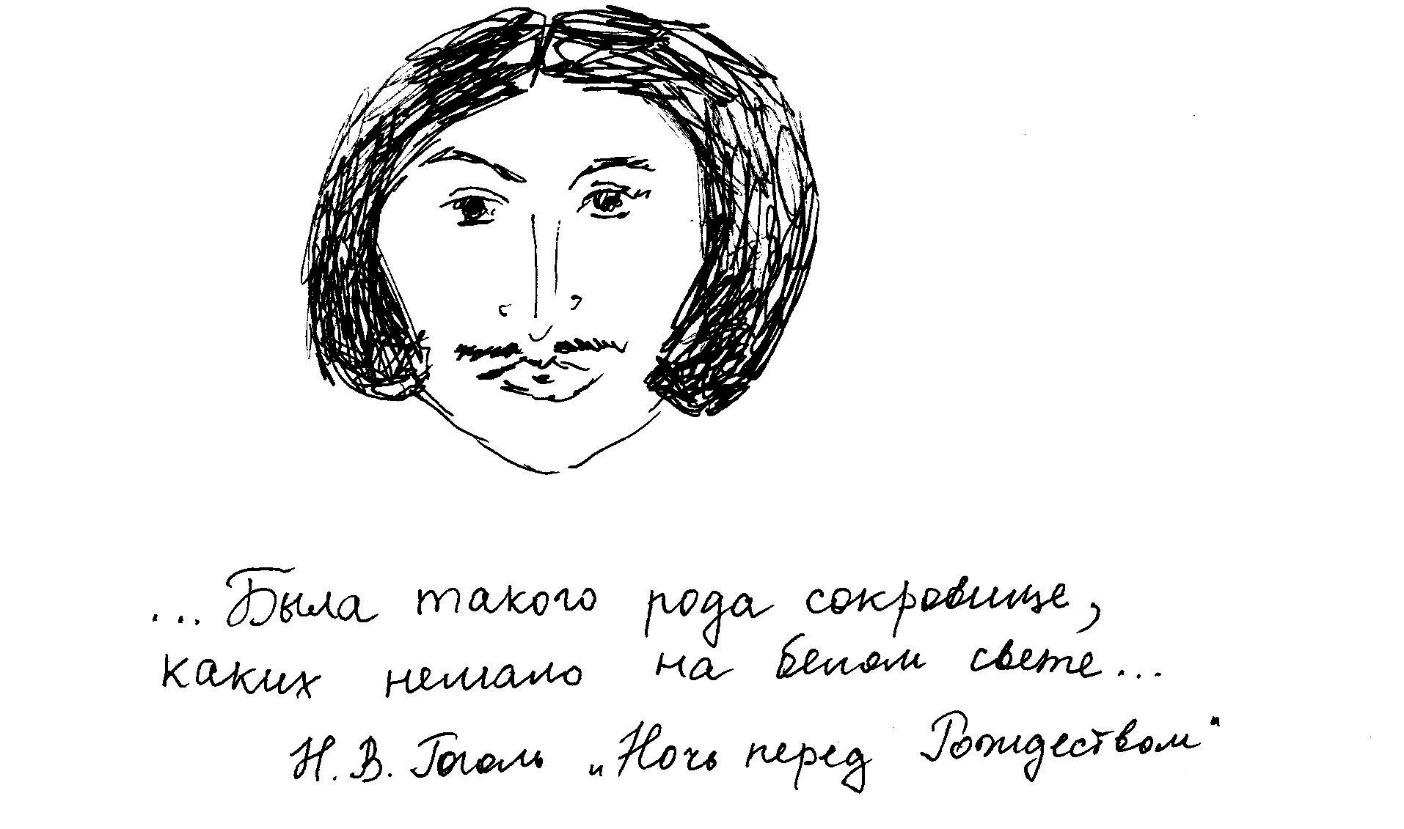 ...Была такого рода сокровище,
каких немало на белом свете...
Н.В. Гоголь „Ночь перед Рождеством"